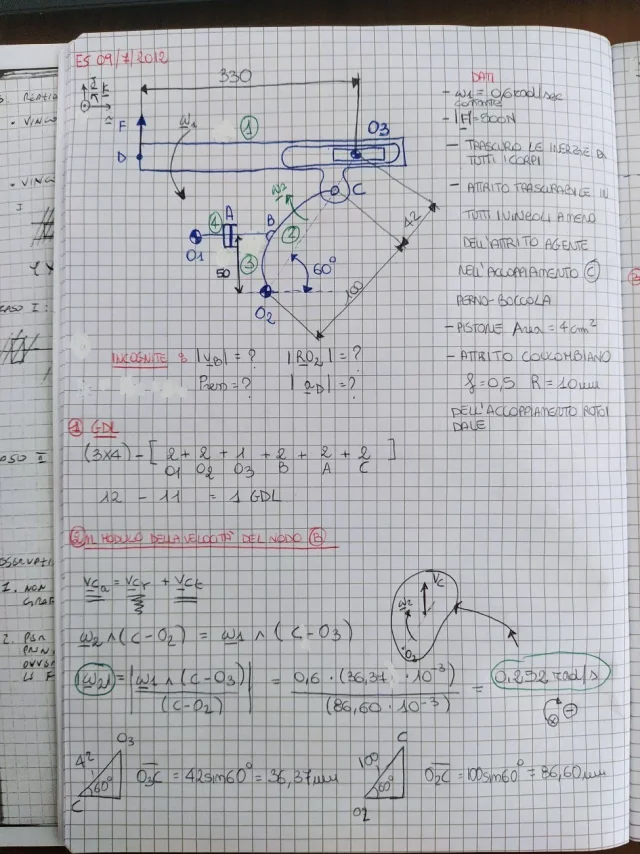 ES 09/7/2012
330
DATI
- ω1 = 0,6 rad/sec
costante
- |F| = 800N
- TRASCURO LE INERZIE DI
TUTTI I CORPI
- ATTRITO TRASCURABILE IN
TUTTI I VINCOLI A MENO
DELL'ATTRITO AGENTE
NELL'ACCOPPIAMENTO C
PERNO-BOCCOLA
- PISTONE Area = 4cm²
- ATTRITO COULOMBIANO
f = 0,5 R = 10mm
DELL'ACCOPPIAMENTO ROTOI
DALE
J
k
F
ω1
1
O3
D
C
ω2
4
A
B
2
42
O1
3
50
60°
100
O2
INCOGNITE 8 |vB| = ? |RO2| = ?
Pren = ? |aD| = ?
1 GDL
(3x4) - [ 2 + 2 + 1 + 2 + 2 + 2 ]
O1 O2 O3 B A C
12 - 11 = 1 GDL
2 IL MODULO DELLA VELOCITA' DEL NODO B
vCa = vCr + vCt
vC
ω2
O2
ω2 ∧ (C-O2) = ω1 ∧ (C-O3)
|ω2| = |ω1 ∧ (C-O3)| / (C-O2) = 0,6 · (36,37 · 10⁻³) / (86,60 · 10⁻³) = 0,252 rad/s
O3
42
60°
C
O3C = 42sin60° = 36,37mm
C
100
60°
O2
O2C = 100sin60° = 86,60mm